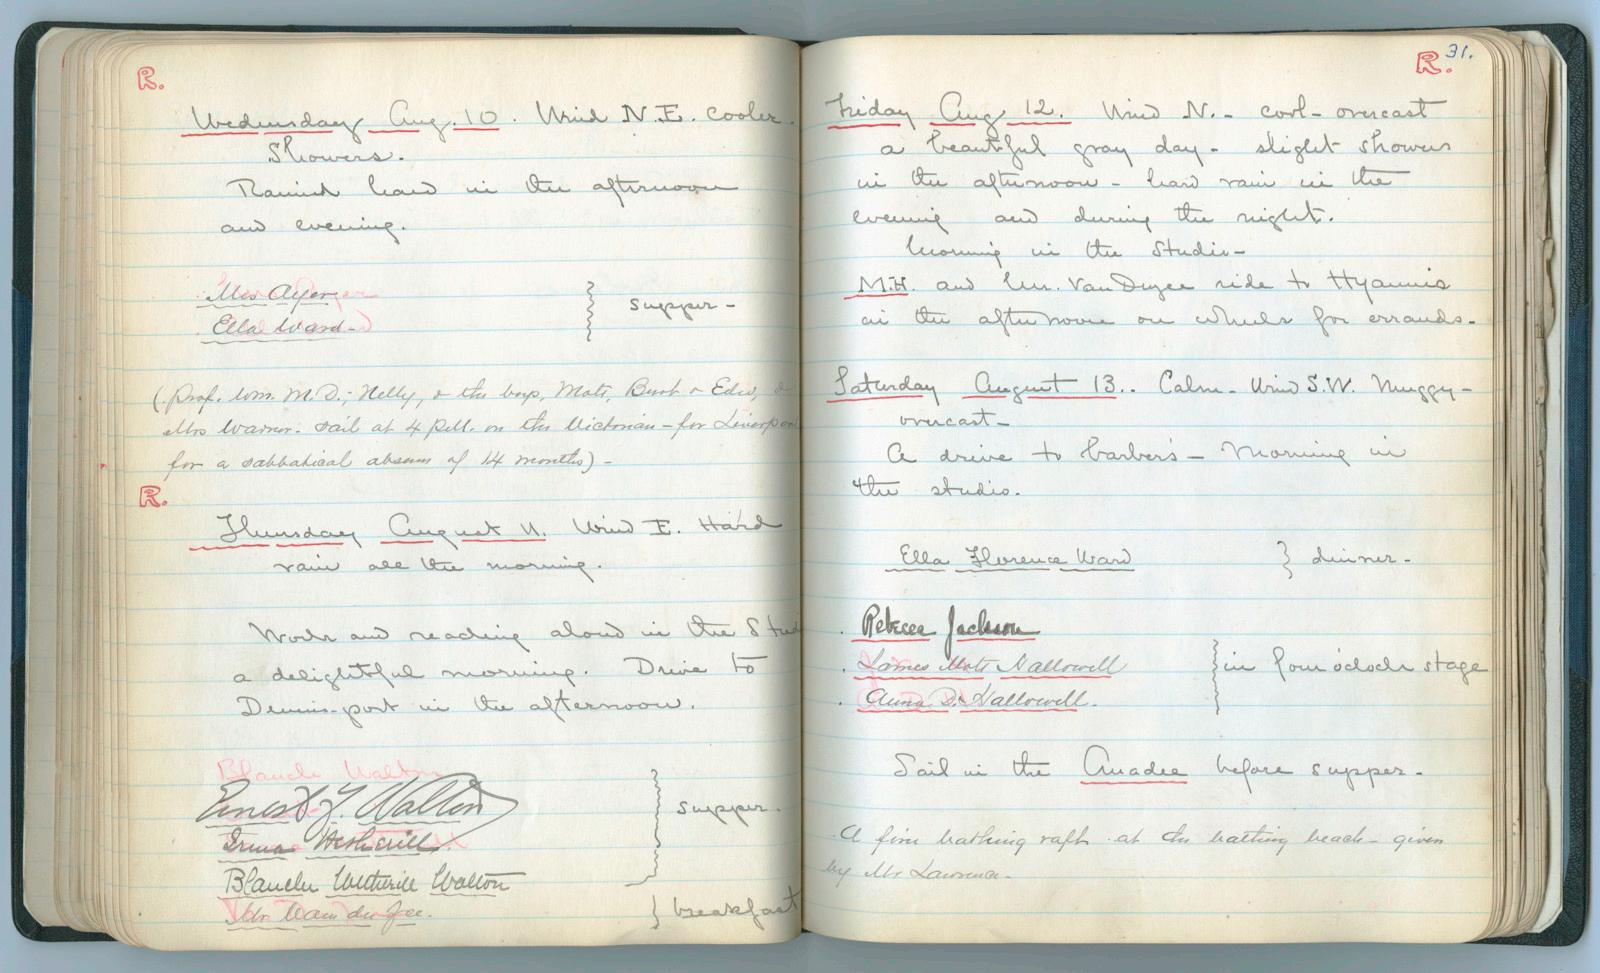 R.
Wednesday Aug. 10. Wind N.E. cooler.
Showers.
Rained hard in the afternoon
and evening.
Mrs Ayer
Ella Ward -
} supper -
(Prof. Wm. M. D.; Nelly, & the boys, Mots, Bush & Edw, &
Mrs Warner. sail at 4 P.M. on the Victorian - for Liverpool
for a sabbatical absence of 14 months) -
R.
Thursday August 11. Wind E. Hard
rain all the morning.
Work and reading aloud in the Stud
a delightful morning. Drive to
Dennis-port in the afternoon.
Blanche Walton
Ernest F. Walton
Irma Wetherill.
Blanche Wetherill Walton
} supper.
Mr Van du Zee. } breakfast
R. 31.
Friday Aug 12. Wind N. - cool - overcast
a beautiful gray day - slight showers
in the afternoon - hard rain in the
evening and during the night.
Morning in the Studio -
M.H. and Mr. Van Duzee ride to Hyannis
in the afternoon on wheels for errands.
Saturday August 13.. Calm - Wind S.W. Muggy -
overcast -
A drive to barber's - Morning in
the studio.
Ella Florence Ward } dinner -
Rebecca Jackson
James Mott Hallowell
Anna D. Hallowell.
} in four o'clock stage
Sail in the Amadee before supper.
A fine bathing raft at the bathing beach - given
by Mr Lawrence -